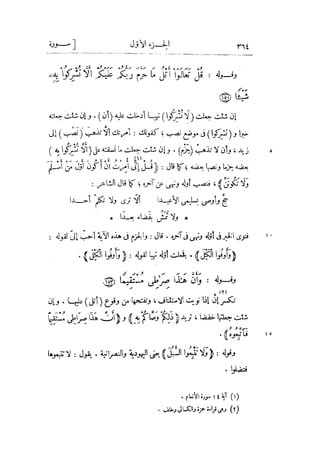 ٣٦٤ الجزء الأول [ ســورة
وقوله : قُلْ تَعَالَوْا أَتْلُ مَا حَرَّمَ رَبُّكُمْ عَلَيْكُمْ أَلَّا تُشْرِكُوا بِهِۦ
شَيْئًا (١٥١)
إن شئت جعلت (لَا تُشْرِكُوا) نهيا أدخلت عليه (أن) . وإن شئت جعلته
خبرا و (تشركوا) فى موضع نصب ؛ كقولك : أمرتك ألّا تذهبَ (نصب) إلى
زيد ، وأن لا تذهبْ (جزم) . وإن شئت جعلت ما نسقته على (أَلَّا تُشْرِكُوا بِهِ) ٥
بعضه جزما ونصبا بعضه ؛ كما قال : (قُلْ إِنِّى أُمِرْتُ أَنْ أَكُونَ أَوَّلَ مَنْ أَسْلَمَ
وَلَا تَكُونَنَّ) ؛ فنصب أوله ونهى عن آخره ؛ كما قال الشاعر :
حج وأوصى بسليمى الأعبدا ألّا ترى ولا تكلّم أحدا
* ولا تمشّ بفضاء بعدا *
فنوى الخبر فى أوله ونهى فى آخره . قال : والجزم فى هذه الآية أحبّ إلىّ لقوله : ١٠
(وَأَوْفُوا الْكَيْلَ) . فجعلت أوله نهيا لقوله : (وَأَوْفُوا الْكَيْلَ) .
وقوله : وَأَنَّ هَٰذَا صِرَاطِى مُسْتَقِيمًا (١٥٣)
تكسر إنّ إذا نويت الاستئناف ، وتفتحها من وقوع (أتل) عليها . وإن
شئت جعلتها خفضا ، تريد (ذَٰلِكُمْ وَصَّاكُمْ بِهِ) و (أَنَّ هَٰذَا صِرَاطِى مُسْتَقِيمًا
فَاتَّبِعُوهُ) . ١٥
وقوله : (وَلَا تَتَّبِعُوا السُّبُلَ) يعنى اليهودية والنصرانية . يقول : لا تتبعوها
فتضلوا .
(١) آية ١٤ سورة الأنعام .
(٢) وهى قراءة حمزة والكسائى وخلف .